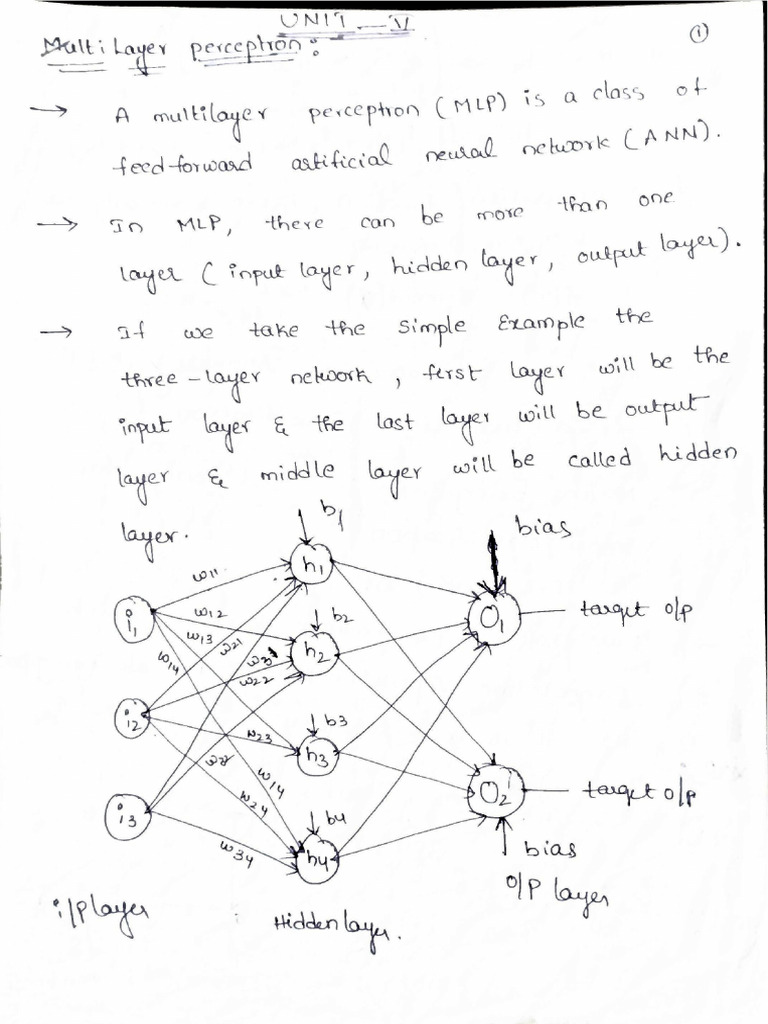 UNIT - V
①
Multi Layer perceptron:
→ A multilayer perceptron (MLP) is a class of
feed-forward artificial neural network (ANN).
→ In MLP, there can be more than one
layer (input layer, hidden layer, output layer).
→ If we take the simple Example the
three-layer network, first layer will be the
input layer & the last layer will be output
layer & middle layer will be called hidden
layer.
b1
bias
w11
h1
i1
w12
O1
target o/p
w13
w21
b2
w14
w31
h2
w22
i2
b3
w23
h3
w14
O2
target o/p
w24
i3
b4
w34
h4
bias
i/p layer
O/P layer
Hidden layer.